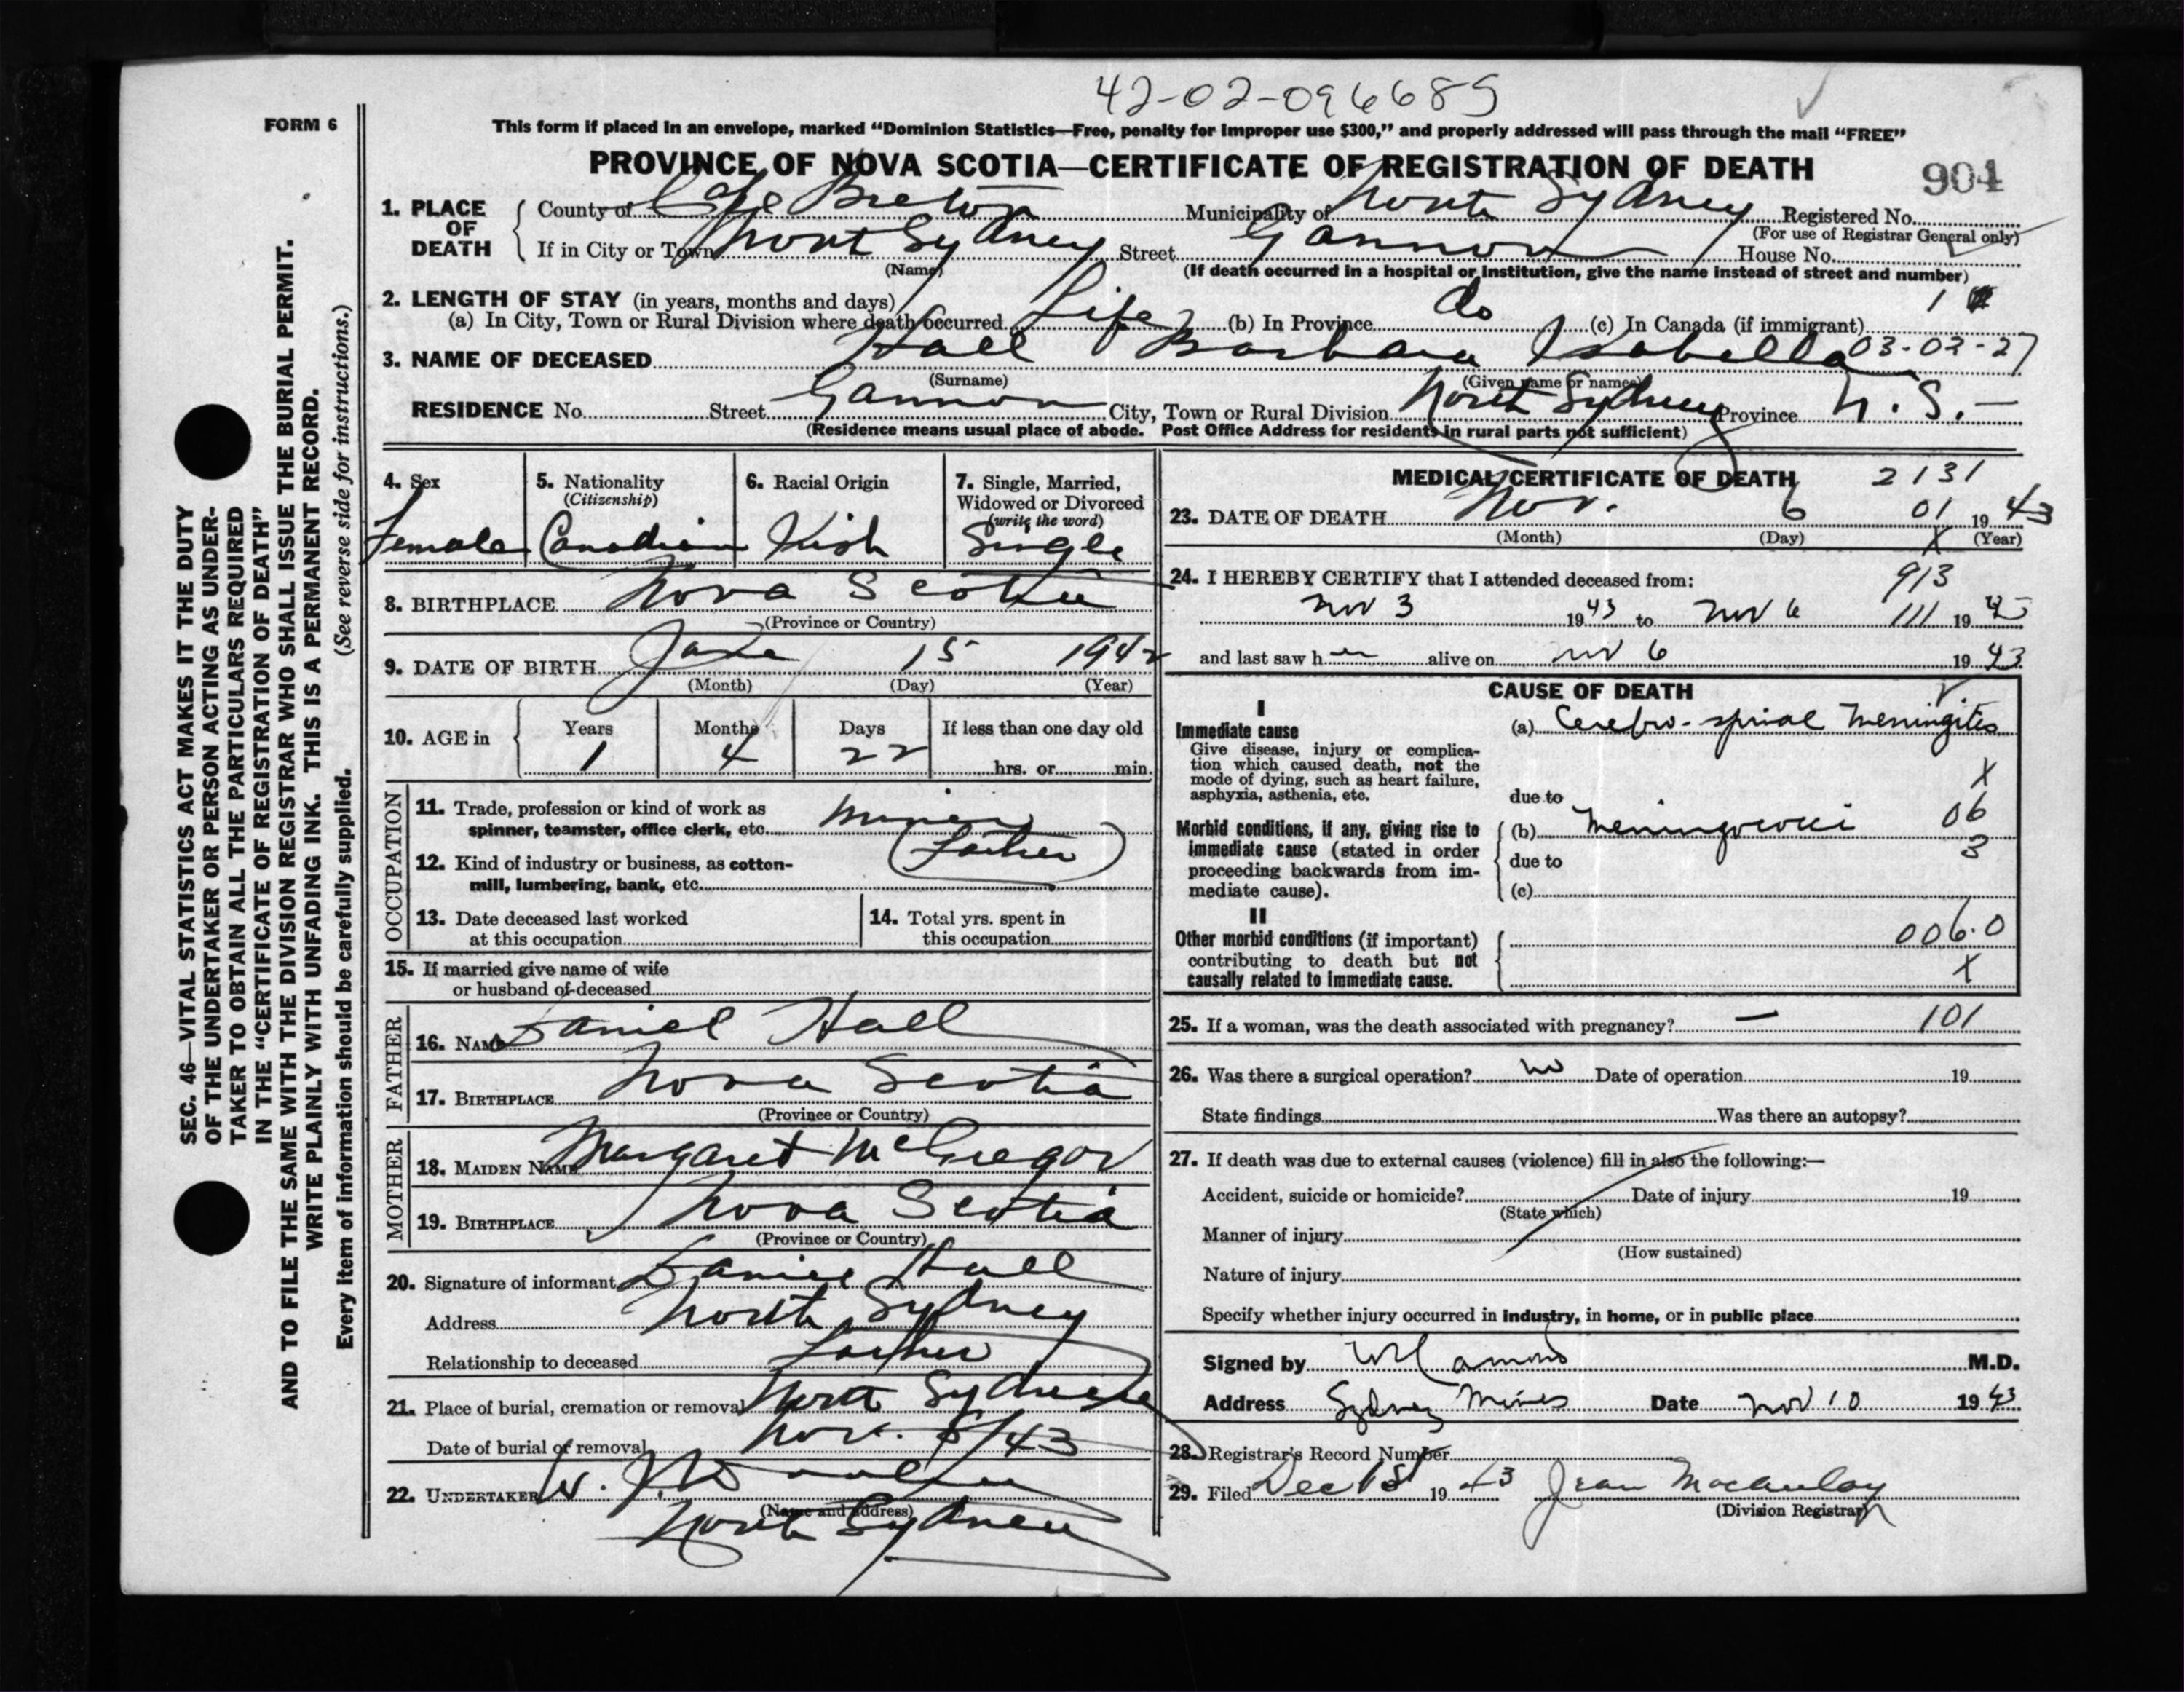 42-02-096685
FORM 6
This form if placed in an envelope, marked “Dominion Statistics—Free, penalty for improper use $300,” and properly addressed will pass through the mail “FREE”
PROVINCE OF NOVA SCOTIA—CERTIFICATE OF REGISTRATION OF DEATH 904
1. PLACE OF DEATH County of Cape Breton Municipality of North Sydney Registered No.
(For use of Registrar General only)
If in City or Town North Sydney Street Gannon House No.
(Name) (If death occurred in a hospital or institution, give the name instead of street and number)
2. LENGTH OF STAY (in years, months and days)
(a) In City, Town or Rural Division where death occurred Life (b) In Province do (c) In Canada (if immigrant) 1
3. NAME OF DECEASED Hall Barbara Isabella 03-02-27
(Surname) (Given name or names)
RESIDENCE No. Street Gannon City, Town or Rural Division North Sydney Province N.S.—
(Residence means usual place of abode. Post Office Address for residents in rural parts not sufficient)
4. Sex 5. Nationality (Citizenship) 6. Racial Origin 7. Single, Married, Widowed or Divorced (write the word)
Female Canadian Irish Single
8. BIRTHPLACE Nova Scotia
(Province or Country)
9. DATE OF BIRTH June 15 1942
(Month) (Day) (Year)
10. AGE in Years Months Days If less than one day old
1 4 22 hrs. or min.
OCCUPATION
11. Trade, profession or kind of work as
spinner, teamster, office clerk, etc. Miner
(Father)
12. Kind of industry or business, as cotton-
mill, lumbering, bank, etc.
13. Date deceased last worked
at this occupation
14. Total yrs. spent in
this occupation
15. If married give name of wife
or husband of deceased
FATHER
16. NAME Daniel Hall
17. BIRTHPLACE Nova Scotia
(Province or Country)
MOTHER
18. MAIDEN NAME Margaret McGregor
19. BIRTHPLACE Nova Scotia
(Province or Country)
20. Signature of informant Daniel Hall
Address North Sydney
Relationship to deceased Father
21. Place of burial, cremation or removal North Sydney
Date of burial or removal Nov. 8/43
22. UNDERTAKER W. J.
(Name and address)
North Sydney
MEDICAL CERTIFICATE OF DEATH 2131
23. DATE OF DEATH Nov. 6 01 19 43
(Month) (Day) X (Year)
24. I HEREBY CERTIFY that I attended deceased from: 913
Nov 3 1943 to Nov 6 111 19 43
and last saw her alive on Nov 6 19 43
CAUSE OF DEATH
I
Immediate cause
Give disease, injury or complica-
tion which caused death, not the
mode of dying, such as heart failure,
asphyxia, asthenia, etc.
(a) Cerebro-spinal Meningitis
X
due to
Morbid conditions, if any, giving rise to
immediate cause (stated in order
proceeding backwards from im-
mediate cause).
(b) Meningococci 06
due to 3
(c)
II
Other morbid conditions (if important)
contributing to death but not
causally related to immediate cause.
006.0
X
25. If a woman, was the death associated with pregnancy? — 101
26. Was there a surgical operation? no Date of operation 19
State findings Was there an autopsy?
27. If death was due to external causes (violence) fill in also the following:—
Accident, suicide or homicide? Date of injury 19
(State which)
Manner of injury
(How sustained)
Nature of injury
Specify whether injury occurred in industry, in home, or in public place
Signed by M.D.
Address Sydney Mines Date Nov 10 19 43
28. Registrar's Record Number
29. Filed Dec 1st 19 43 Jean Macaulay
(Division Registrar)
SEC. 46—VITAL STATISTICS ACT MAKES IT THE DUTY
OF THE UNDERTAKER OR PERSON ACTING AS UNDER-
TAKER TO OBTAIN ALL THE PARTICULARS REQUIRED
IN THE “CERTIFICATE OF REGISTRATION OF DEATH”
AND TO FILE THE SAME WITH THE DIVISION REGISTRAR WHO SHALL ISSUE THE BURIAL PERMIT.
WRITE PLAINLY WITH UNFADING INK. THIS IS A PERMANENT RECORD.
Every item of information should be carefully supplied. (See reverse side for instructions.)